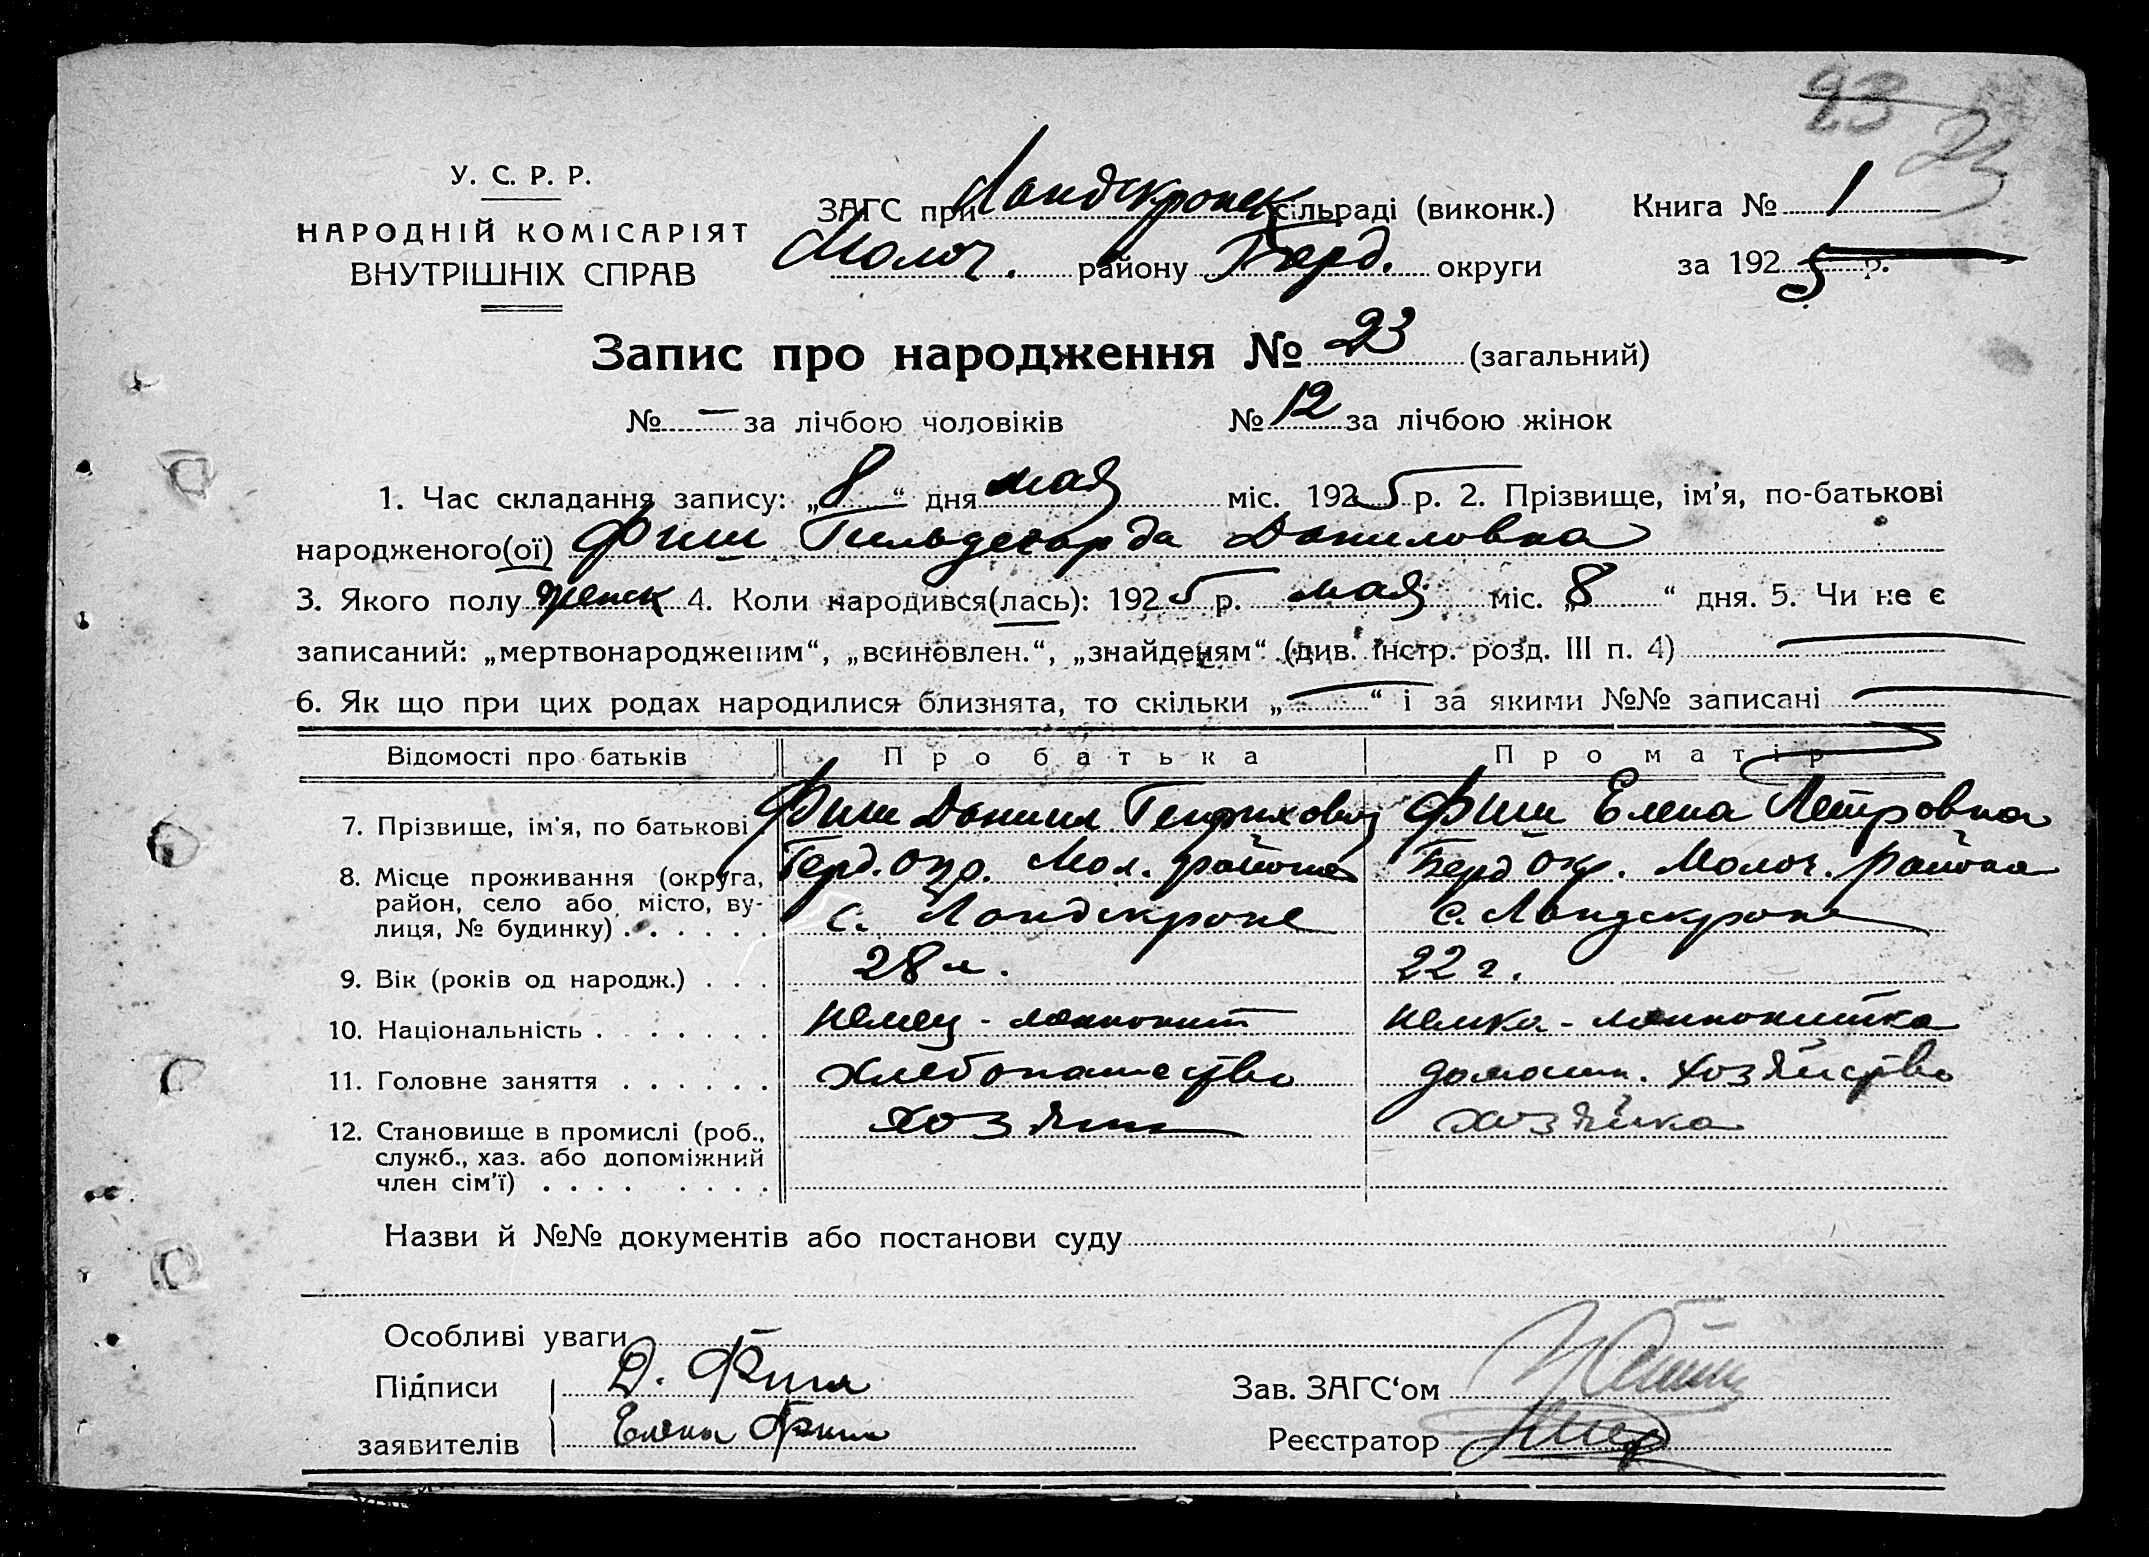 23
23
У. С. Р. Р.
НАРОДНІЙ КОМІСАРІЯТ
ВНУТРІШНІХ СПРАВ
ЗАГС при Ландскронск сільраді (виконк.)
Молоч. району Берд. округи
Книга № 1
за 1925 р.
Запис про народження № 23 (загальний)
№ — за лічбою чоловіків № 12 за лічбою жінок
1. Час складання запису: „8“ дня мая міс. 1925 р. 2. Прізвище, ім’я, по-батькові
народженого(ої) Фиш Гильдегарда Даниловна
3. Якого полу женск 4. Коли народився(лась): 1925 р. мая міс. „8“ дня. 5. Чи не є
записаний: „мертвонародженим“, „всиновлен.“, „знайденям“ (див. інстр. розд. III п. 4) —
6. Як що при цих родах народилися близнята, то скільки „—“ і за якими №№ записані —
Відомості про батьків Про батька Про матір
7. Прізвище, ім’я, по батькові Фиш Даниил Генрихович Фиш Елена Петровна
8. Місце проживання (округа, Берд. окр. Мол. района Берд окр. Молоч. района
район, село або місто, ву-
лиця, № будинку) . . . . . . с. Ландскроне с. Ландскроне
9. Вік (років од народж.) . . . 28 л. 22 г.
10. Національність . . . . . . . немец - меннонит немка - меннонитка
11. Головне заняття . . . . . . хлебопашество домашн. хозяйство
12. Становище в промислі (роб., хозяин хозяйка
служб., хаз. або допоміжний
член сім’ї) . . . . . . . .
Назви й №№ документів або постанови суду
Особливі уваги
Підписи Д. Фиш
заявителів Елена Фиш
Зав. ЗАГС‘ом
Реєстратор